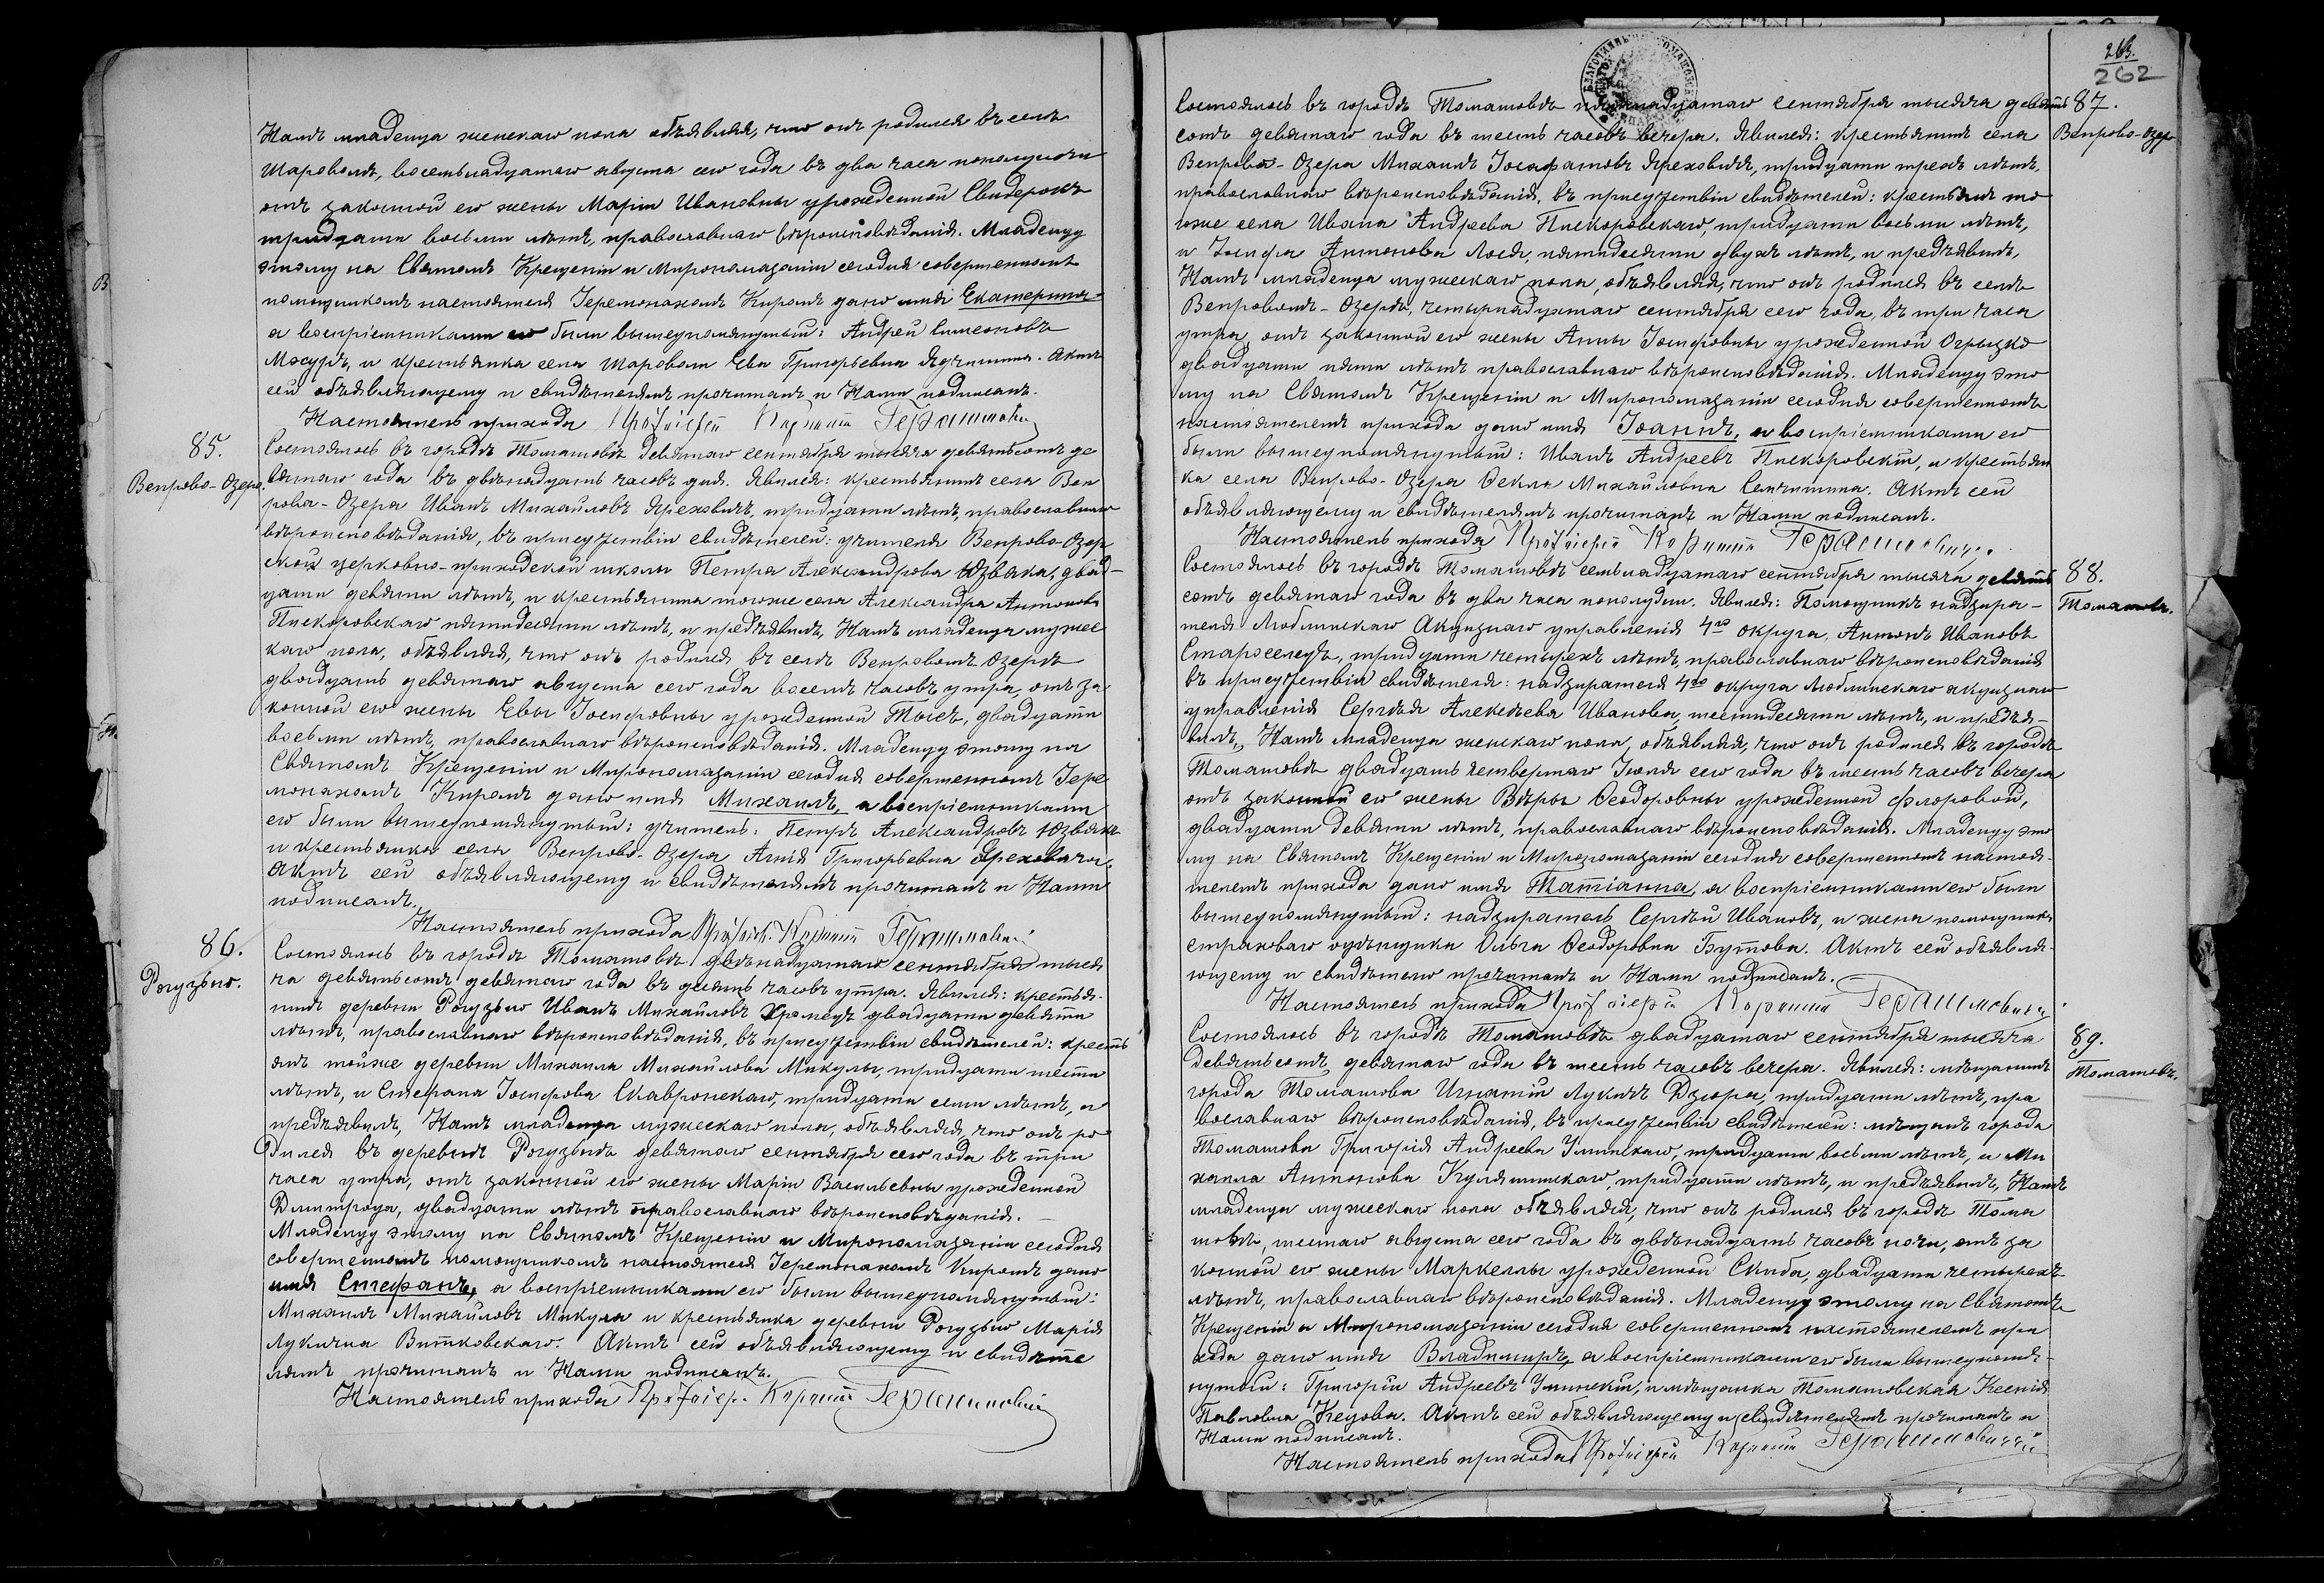 Намъ младенца женскаго пола объявляя, что онъ родился въ селѣ
Шароволѣ, восемьнадцатаго августа сего года въ два часа пополудни
отъ законной его жены Маріи Ивановны урожденной Свидерокъ
тридцати восьми лѣтъ, православнаго вѣроисповѣданія. Младенцу
этому на Святомъ Крещеніи и Мѵропомазаніи сегодня совершенномъ
помощникомъ настоятеля Іеромонахомъ Киромъ дано имя Екатерина
а воспріемниками его были вышеупомянутый: Андрей Симеоновъ
и крестьянка села Шароволи Ева Григорьевна Актъ
сей объявляющему и свидѣтелямъ прочитанъ и Нами подписанъ.
Настоятель прихода Протоіерей
85.
Венрово-Озеро.
Состоялось въ городѣ Томашовѣ девятаго сентября тысяча девятьсотъ де
вятаго года въ двѣнадцать часовъ дня. Явился: крестьянинъ села Веп
рова-Озера Иванъ Михайловъ Яреховичъ, тридцати лѣтъ, православнаго
вѣроисповѣданія, въ присутствіи свидѣтелей: учителя Вепрово-Озер
ской церковно-приходской школы Петра Александрова Юзвака, двад-
цати девяти лѣтъ, и крестьянина тогоже села Александра Антонова
Пискоровскаго пятидесяти лѣтъ, и предъявилъ, Намъ младенца мужес
каго пола, объявляя, что онъ родился въ селѣ Вепровомъ Озерѣ
двадцать девятаго августа сего года восемь часовъ утра, отъ за
конной его жены Евы Іосифовны урожденной Тысъ, двадцати
восьми лѣтъ, православнаго вѣроисповѣданія. Младенцу этому на
Святомъ Крещеніи и Мѵропомазаніи сегодня совершенномъ Іеро
монахомъ Киромъ дано имя Михаилъ, а воспріемниками
его были вышеупомянутый: учитель: Петръ Александровъ Юзвакъ
и крестьянка села Вепрово-Озера Агнія Григорьевна Яреховичъ.
Актъ сей объявляющему и свидѣтелямъ прочитанъ и Нами
подписанъ.
Настоятель прихода
86.
Рогузьно.
Состоялось въ городѣ Томашовѣ двѣнадцатаго сентября тыся
ча девятьсотъ девятаго года въ десять часовъ утра. Явился: крестья-
нинъ деревни Рогузьно Иванъ Михайловъ Хромецъ двадцати девяти
лѣтъ, православнаго вѣроисповѣданія, въ присутствіи свидѣтелей: кресть
янъ тойже деревни Михаила Михайлова Микулы, тридцати шести
лѣтъ, и Стефана Іосифова Скавронскаго, тридцати семи лѣтъ, и
предъявилъ, Намъ младенца мужескаго пола, объявляя, что онъ ро
дился въ деревнѣ Рогузьнѣ девятаго сентября сего года въ три
часа утра, отъ законной его жены Маріи Васильевны урожденной
Дмитроца, двадцати лѣтъ православнаго вѣроисповѣданія. —
Младенцу этому на Святомъ Крещеніи и Мѵропомазаніи сегодня
совершенномъ помощникомъ настоятеля Іеромонахомъ Киромъ дано
имя Стефанъ, а воспріемниками его были вышеупомянутый:
Михаилъ Михайловъ Микула и крестьянка деревни Рогузьно Марія
Лукична Витковскаго. Актъ сей объявляющему и свидѣте
лямъ прочитанъ и Нами подписанъ.
Настоятель прихода
263.
262
87.
Вепрово-Озеро
Состоялось въ городѣ Томашовѣ пятнадцатаго сентября тысяча девять
сотъ девятаго года въ шесть часовъ вечера. Явился: крестьянинъ села
Вепрова-Озера Михаилъ Іосафатовъ Яреховичъ, тридцати трехъ лѣтъ,
православнаго вѣроисповѣданія, въ присутствіи свидѣтелей: крестьянъ то
гоже села Ивана Андреева Пискоровскаго, тридцати восьми лѣтъ,
и Іосифа Антонова Лося, пятидесяти двухъ лѣтъ, и предъявилъ,
Намъ младенца мужескаго пола, объявляя, что онъ родился въ селѣ
Вепровомъ-Озерѣ, четырнадцатаго сентября сего года, въ три часа
утра, отъ законной его жены Анны Іосифовны урожденной Огрызко
двадцати пяти лѣтъ православнаго вѣроисповѣданія. Младенцу это
му на Святомъ Крещеніи и Мѵропомазаніи сегодня совершенномъ
настоятелемъ прихода дано имя Іоаннъ, а воспріемниками его
были вышеупомянутый: Иванъ Андреевъ Пискоровскій, и крестьян
ка села Вепрово-Озера Ѳекла Михайловна Актъ сей
объявляющему и свидѣтелямъ прочитанъ и Нами подписанъ.
Настоятель прихода Протоіерей
88.
Томашовъ.
Состоялось въ городѣ Томашовѣ семьнадцатаго сентября тысяча девять
сотъ девятаго года въ два часа пополудни. Явился: Помощникъ надзира-
теля Люблинскаго Акцизнаго управленія 4го округа, Антонъ Ивановъ
Староселецъ, тридцати четырехъ лѣтъ, православнаго вѣроисповѣданія
въ присутствіи свидѣтеля: надзирателя 4го округа Люблинскаго акцизнаго
управленія Сергѣя Алексѣева Иванова, шестидесяти лѣтъ, и предъя-
вилъ, Намъ младенца женскаго пола, объявляя, что онъ родился въ городѣ
Томашовѣ двадцать четвертаго Іюля сего года въ шесть часовъ вечера
отъ законной его жены Вѣры Ѳеодоровны урожденной Флоровой,
двадцати девяти лѣтъ, православнаго вѣроисповѣданія. Младенцу это
му на Святомъ Крещеніи и Мѵропомазаніи сегодня совершенномъ настоя-
телемъ прихода дано имя Татіанна, а воспріемниками его были
вышеупомянутый: надзиратель Сергѣй Ивановъ, и жена помощника
страховаго оцѣнщика Ольга Ѳеодоровна Бутова. Актъ сей объявля-
ющему и свидѣтелю прочитанъ и Нами подписанъ.
Настоятель прихода Протоіерей
89.
Томашовъ.
Состоялось въ городѣ Томашовѣ двадцатаго сентября тысяча
девятьсотъ девятаго года въ шесть часовъ вечера. Явился: мѣщанинъ
города Томашова Игнатій Лукичъ Дзюра, тридцати лѣтъ, пра
вославнаго вѣроисповѣданія, въ присутствіи свидѣтелей: мѣщанъ города
Томашова Григорія Андреева тридцати восьми лѣтъ, и Ми
хаила Антонова тридцати лѣтъ, и предъявилъ, Намъ
младенца мужескаго пола объявляя, что онъ родился въ городѣ Тома
шовѣ, шестаго августа сего года въ двѣнадцать часовъ ночи, отъ за
конной его жены Маркеллы урожденной Скиба, двадцати четырехъ
лѣтъ, православнаго вѣроисповѣданія. Младенцу этому на Святомъ
Крещеніи и Мѵропомазаніи сегодня совершенномъ настоятелемъ при
хода дано имя Владимиръ, а воспріемниками его были вышеупомя-
нутый: Григорій Андреевъ и мѣщанка Томашовская Ксенія
Павловна Актъ сей объявляющему и свидѣтелямъ прочитанъ и
Нами подписанъ.
Настоятель прихода Протоіерей